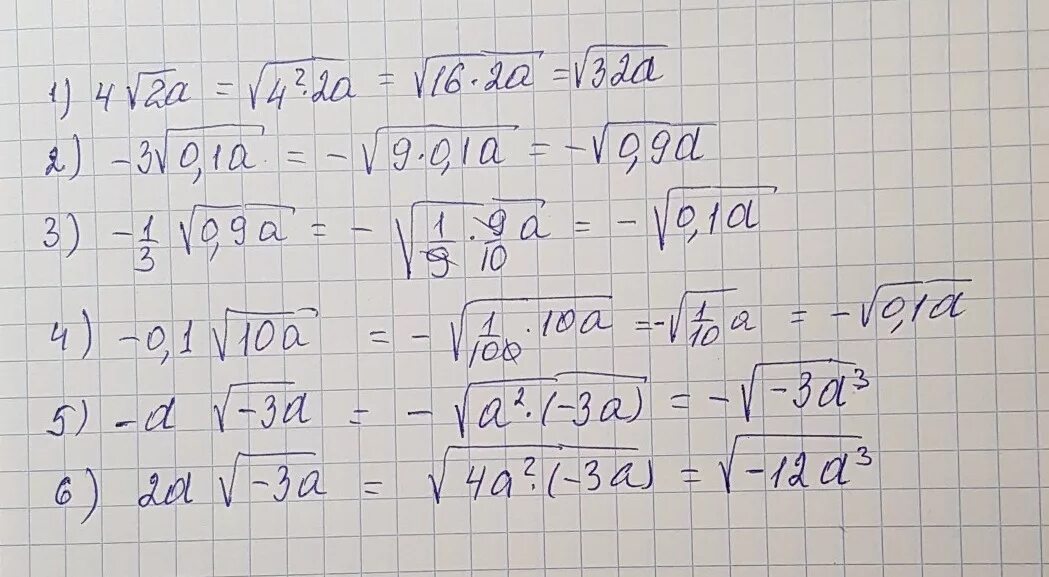 1) 4√2a = √4²·2a = √16·2a = √32a
2) -3√0,1a = -√9·0,1a = -√0,9a
3) -1/3 √0,9a = -√1/9·9/10 a = -√0,1a
4) -0,1√10a = -√1/100·10a = -√1/10 a = -√0,1a
5) -a √-3a = -√a²·(-3a) = -√-3a³
6) 2a √-3a = √4a²·(-3a) = √-12a³